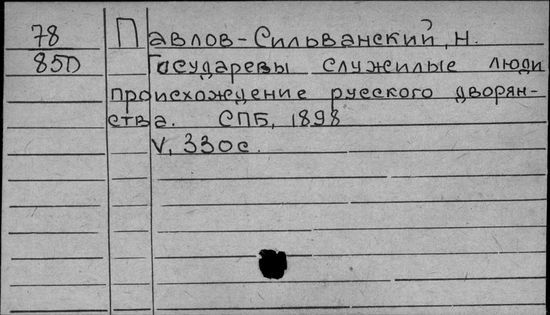 78 Павлов-Сильванский, Н.
850 Государевы служилые люди
происхождение русского дворян-
ства. СПБ, 1898
V, 330с.